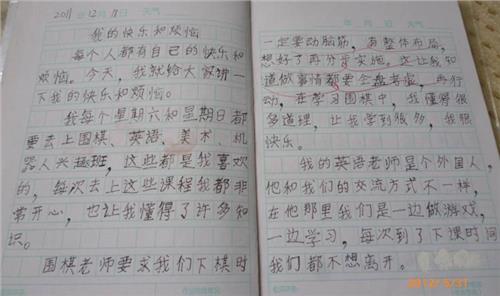 2011年12月11日 天气
我的快乐和烦恼
每个人都有自己的快乐和
烦恼。今天，我就给大家讲一
下我的快乐和烦恼。
我每个星期六和星期日都
要去上围棋、英语、美术、机
器人兴趣班，这些都是我喜欢
的，每次去上这些课程我都非
常开心，也让我懂得了许多知
识。
围棋老师要求我们下棋时
年 月 日 天气
一定要动脑筋，有整体布局，
想好了再分步实施。这让我知
道做事情都要全盘考虑，再行
动，在学习围棋中，我懂得很
多道理，让我学到很多，我很
快乐。
我的英语老师是个外国人，
他和我们的交流方式不一样，
在他那里我们是一边做游戏，
一边学习，每次到了下课时间
我们都不想离开。
2012/5/31